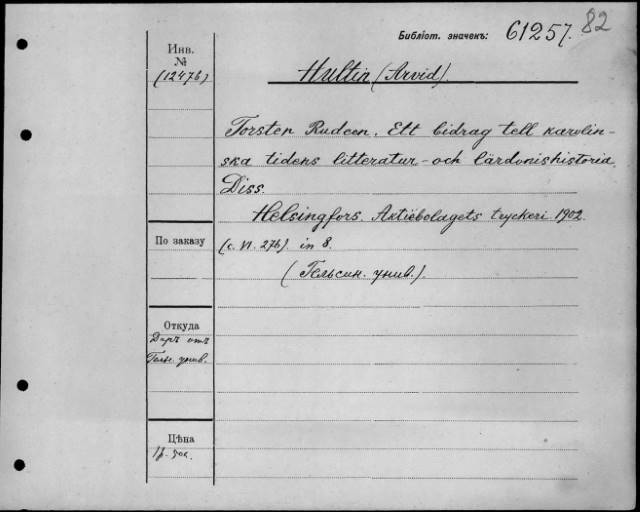 Библіот. значекъ: 61257. 82
Инв.
№
(12476)
Hultin (Arvid).
Torsten Rudeen. Ett bidrag tell karolin-
ska tidens litteratur- och lärdomshistoria.
Diss.
Helsingfors. Aktiebolagets tryckeri 1902.
По заказу
(c. VI. 276). in 8.
(Гельсин. унив.).
Откуда
Даръ отъ
Гельс. унив.
Цѣна